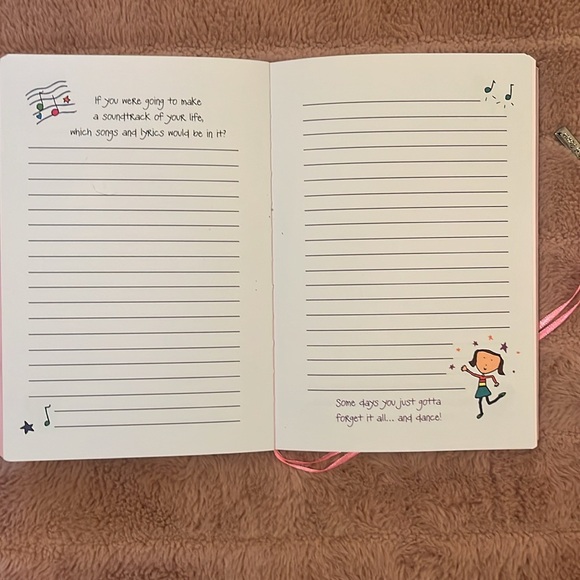 If you were going to make
a soundtrack of your life,
which songs and lyrics would be in it?
Some days you just gotta
forget it all... and dance!